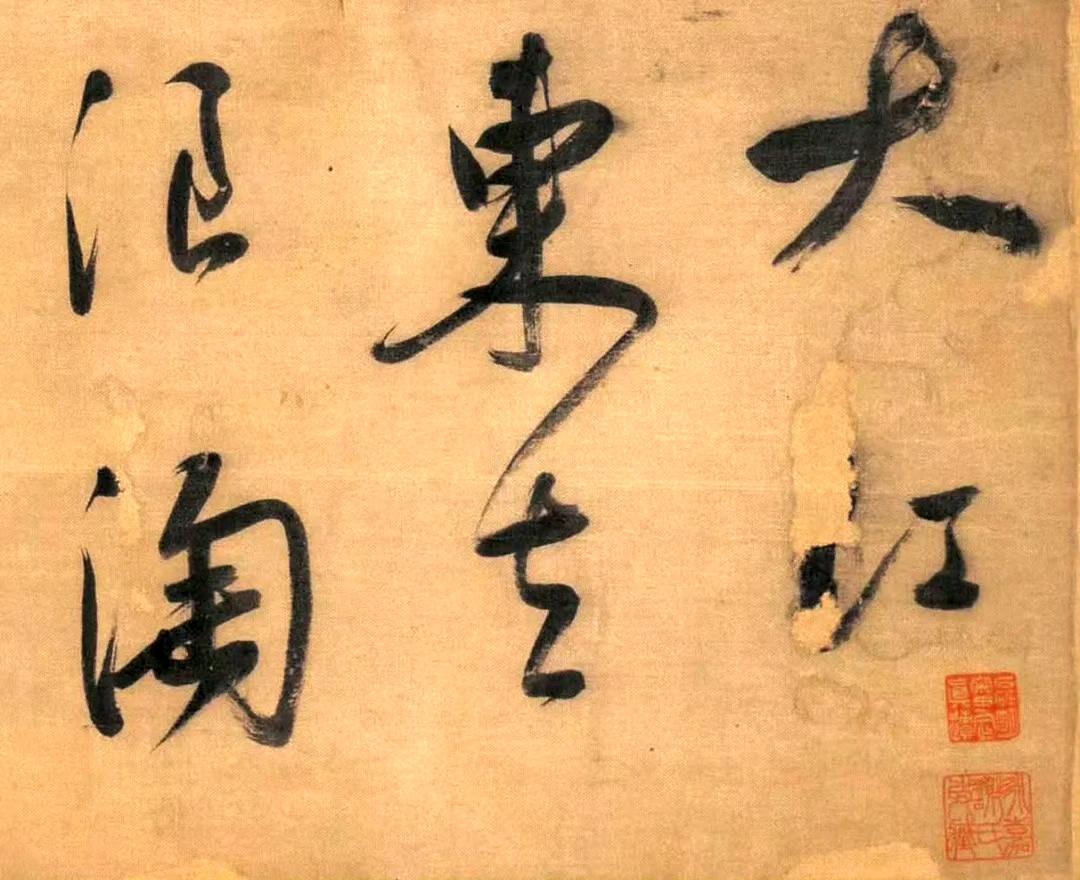 大江
東去
浪淘